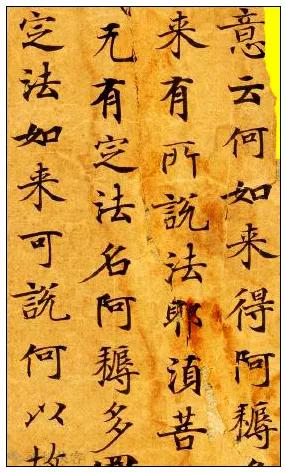 意云何如来得阿耨多
来有所說法耶湏菩
无有定法名阿耨多羅
定法如来可說何以故